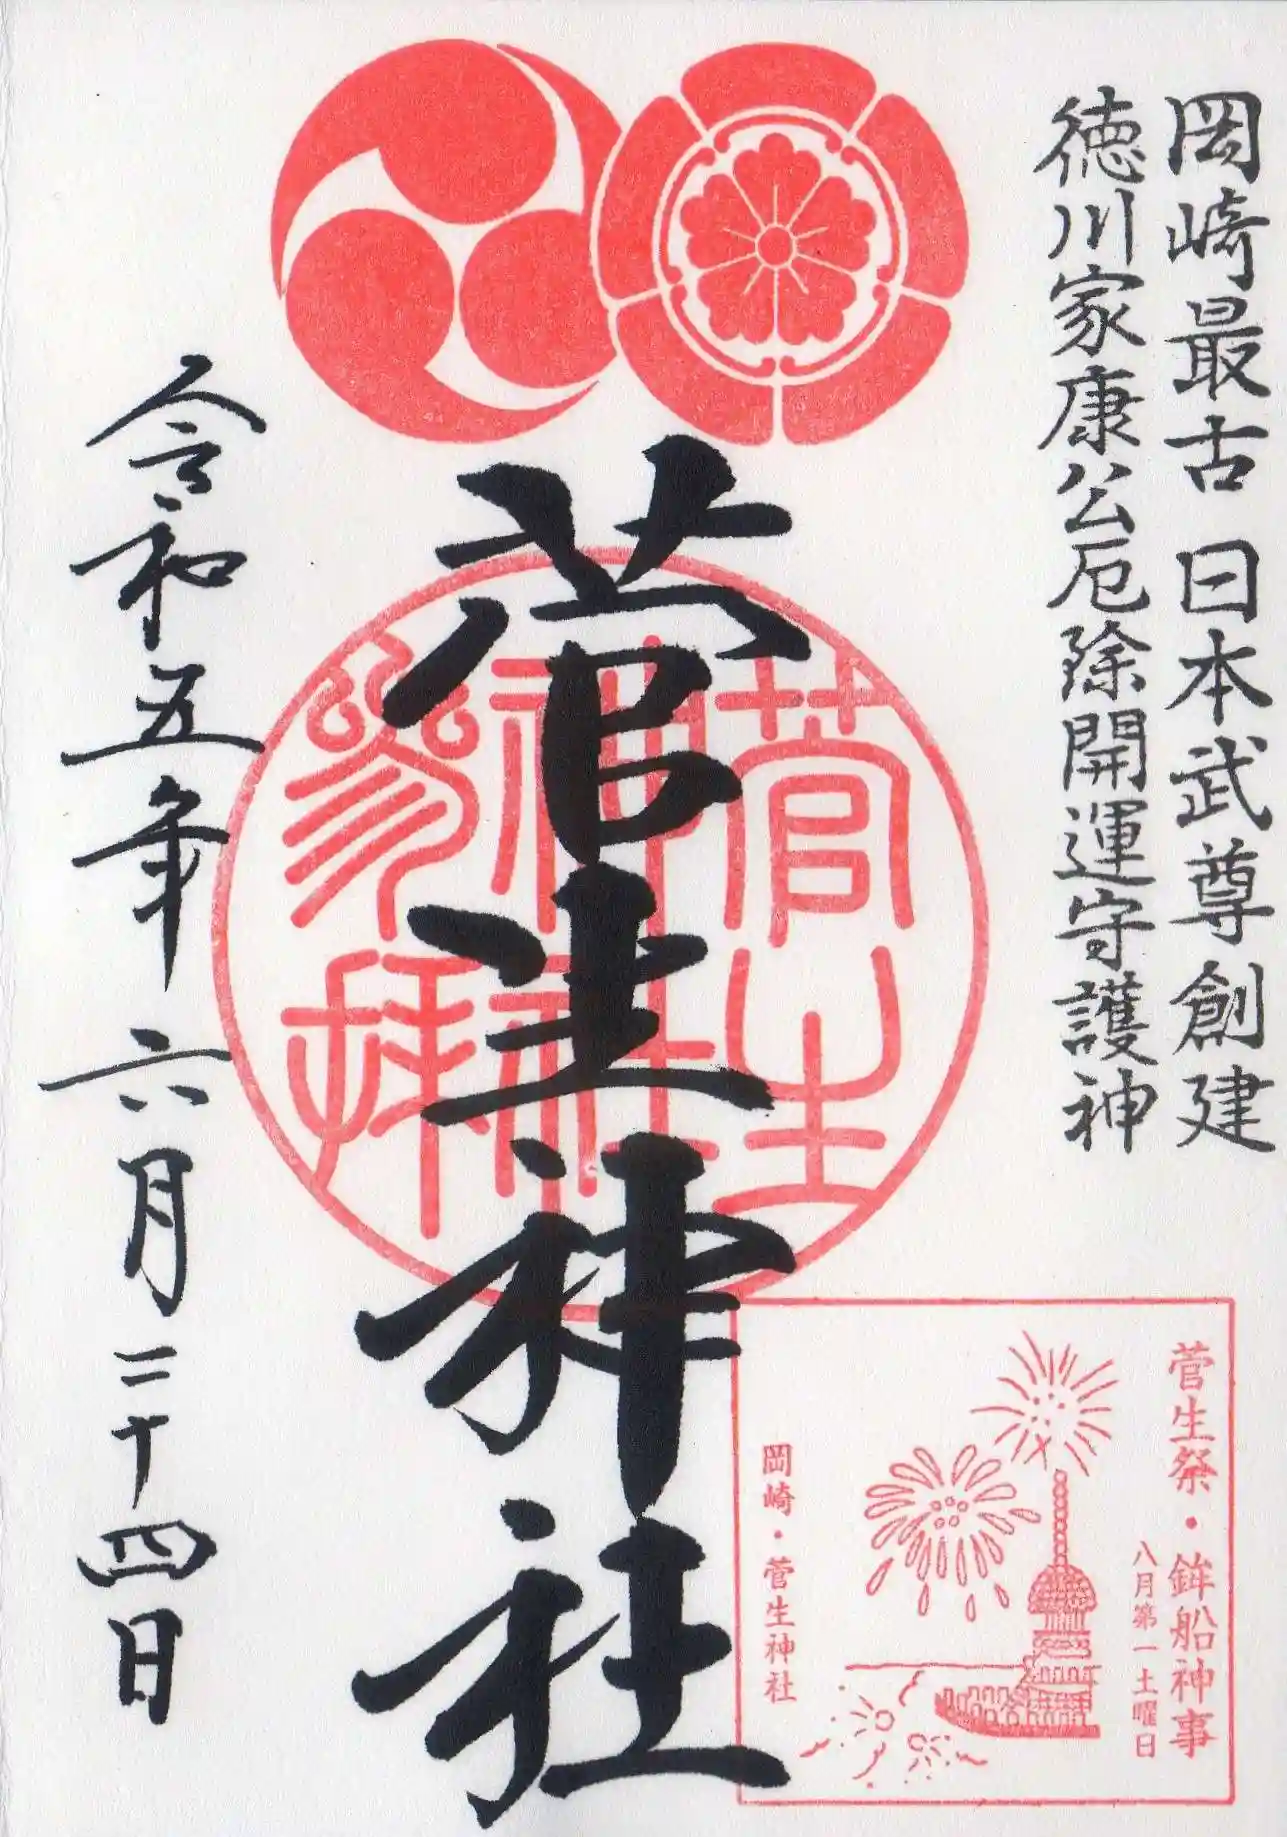 岡崎最古 日本武尊創建
徳川家康公厄除開運守護神
菅生神社
菅生
神社
参拝
令和五年 六月二十四日
菅生祭・鉾船神事
八月第一土曜日
岡崎・菅生神社